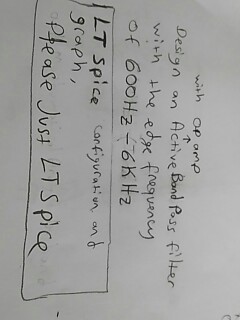 with op amp
Design an Active Band pass filter
with the edge frequency
of 600Hz - 6KHz
LT spice configuration and
graph,
Please Just LT Spice